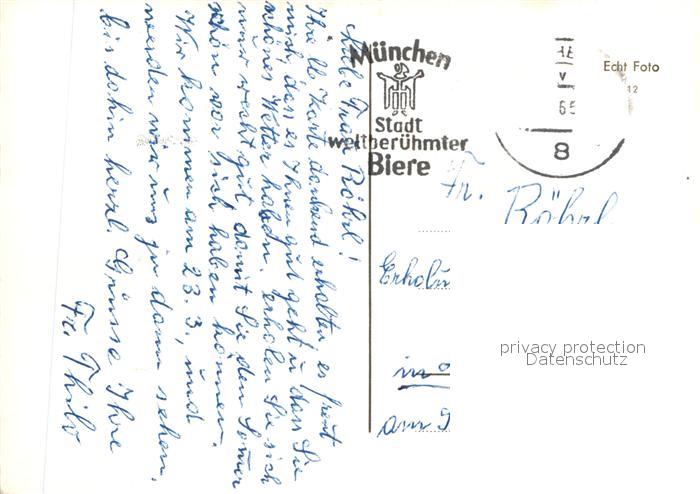 Liebe Frau Röhrl!
Ihre lb Karte dankend erhalten, es freut
mich, das es Ihnen gut geht u das Sie
schönes Wetter haben. erholen Sie sich
nur recht gut damit Sie den Somer
schön vor sich haben können.
Wir kommen am 23.3, und
werden wir uns ja dann sehen.
bis dahin herzl. Grüsse Ihre
Fr. Thilo
München
Stadt
weltberühmter
Biere
V
65
8
Echt Foto
12
Fr. Röhrl
Erholun
in
am
privacy protection
Datenschutz